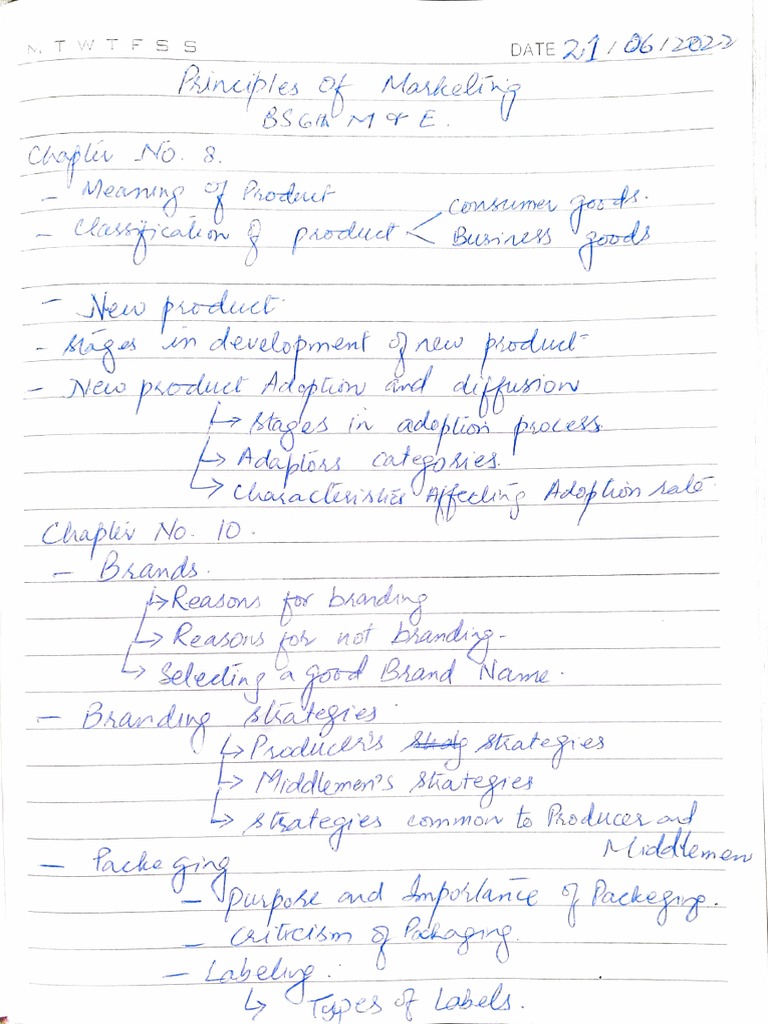 M T W T F S S DATE 21/06/2022
Principles of Marketing
BS 6th M & E.
Chapter No. 8.
- Meaning of Product
- Classification of product < Consumer goods.
Business goods
- New product
- stages in development of new product
- New product Adoption and diffusion
↳ Stages in adoption process
↳ Adaptors categories.
↳ Characteristics Affecting Adoption rate
Chapter No. 10.
- Brands.
↳ Reasons for branding
↳ Reasons for not branding-
↳ Selecting a good Brand Name.
- Branding strategies
↳ Producer's strategies
↳ Middlemen's strategies
↳ strategies common to Producer and
Middlemen
- Packeging
- Purpose and Importance of Packeging.
- Criticism of Packaging.
- Labeling.
↳ Types of Labels.